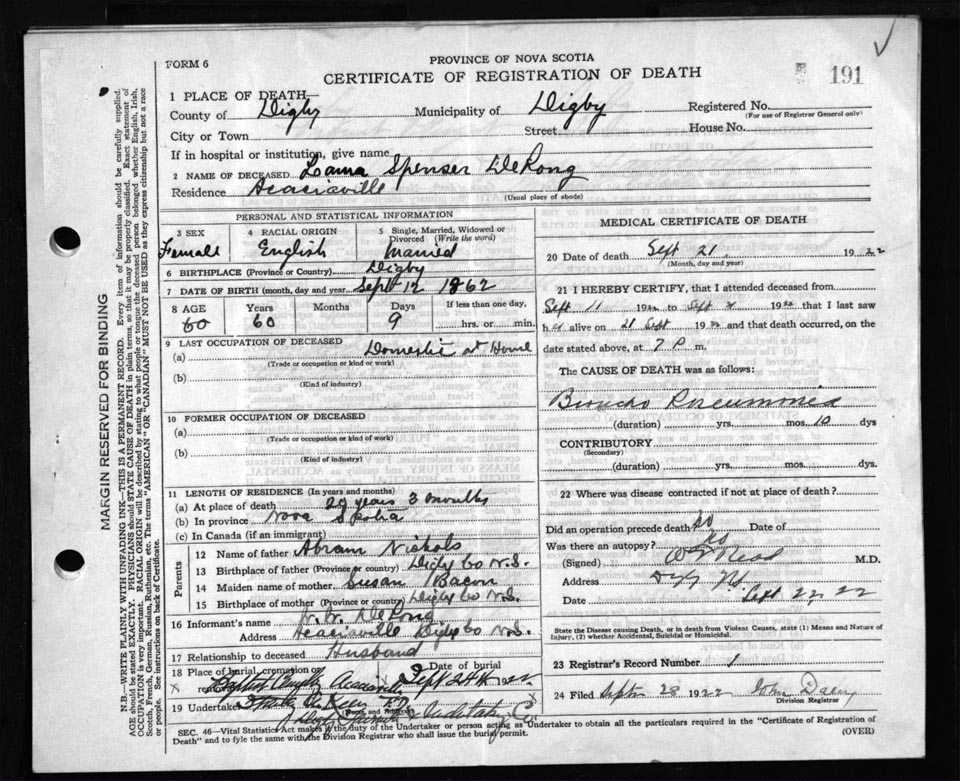 FORM 6
PROVINCE OF NOVA SCOTIA
CERTIFICATE OF REGISTRATION OF DEATH
191
1 PLACE OF DEATH—
County of Digby Municipality of Digby Registered No.
(For use of Registrar General only)
City or Town Street House No.
If in hospital or institution, give name
2 NAME OF DECEASED Spenser DeLong
Residence Acaciaville
(Usual place of abode)
PERSONAL AND STATISTICAL INFORMATION
3 SEX 4 RACIAL ORIGIN 5 Single, Married, Widowed or Divorced (Write the word)
Female English Married
6 BIRTHPLACE (Province or Country) Digby
7 DATE OF BIRTH (month, day and year) Sept 12 1862
8 AGE Years Months Days If less than one day,
60 60 9 hrs. or min.
9 LAST OCCUPATION OF DECEASED
(a) Domestic at Home
(Trade or occupation or kind or work)
(b)
(Kind of industry)
10 FORMER OCCUPATION OF DECEASED
(a)
(Trade or occupation or kind of work)
(b)
(Kind of industry)
11 LENGTH OF RESIDENCE (In years and months)
(a) At place of death years 3 months
(b) In province Nova Skotia
(c) In Canada (if an immigrant)
Parents
12 Name of father Abram Nichols
13 Birthplace of father (Province or country) Digby Co N.S.
14 Maiden name of mother Susan Bacon
15 Birthplace of mother (Province or country) Digby Co N.S.
16 Informant's name W. DeLong
Address Acaciaville Digby Co N.S.
17 Relationship to deceased Husband
18 Place of burial, cremation or Date of burial
Acaciaville Sept 24th 22
19 Undertaker
MEDICAL CERTIFICATE OF DEATH
20 Date of death Sept 21, 1922
(Month, day and year)
21 I HEREBY CERTIFY, that I attended deceased from
Sept 11 1922 to Sept 21 1922 that I last saw
her alive on 21 Sept 1922 and that death occurred, on
date stated above, at 7 P m.
The CAUSE OF DEATH was as follows:
Broncho Pneumonia
(duration) yrs. mos. 10 dys
CONTRIBUTORY
(Secondary)
(duration) yrs. mos. dys.
22 Where was disease contracted if not at place of death?
Did an operation precede death? No Date of
Was there an autopsy? No
(Signed) M.D.
Address Digby N.S.
Date Sept 22, 22
State the Disease causing Death, or in death from Violent Causes, state (1) Means and Nature of
Injury, (2) whether Accidental, Suicidal or Homicidal.
23 Registrar's Record Number 1
24 Filed Sept 28 1922 John
Division Registrar
SEC. 46—Vital Statistics Act makes it the duty of the Undertaker or person acting as Undertaker to obtain all the particulars required in the "Certificate of Registration of
Death" and to fyle the same with the Division Registrar who shall issue the burial permit. (OVER)
MARGIN RESERVED FOR BINDING
N.B.—WRITE PLAINLY WITH UNFADING INK—THIS IS A PERMANENT RECORD. Every item of information should be carefully supplied.
AGE should be stated EXACTLY. PHYSICIANS should STATE CAUSE OF DEATH in plain terms, so that it may be properly classified. Exact statement of
OCCUPATION is very important. RACIAL ORIGIN will be described by stating to what people or tongue the deceased person belonged whether English, Irish,
Scotch, French, German, Russian, Ruthenian, etc. The terms "AMERICAN" OR "CANADIAN" MUST NOT BE USED as they express citizenship but not a race
or people. See instructions on back of Certificate.